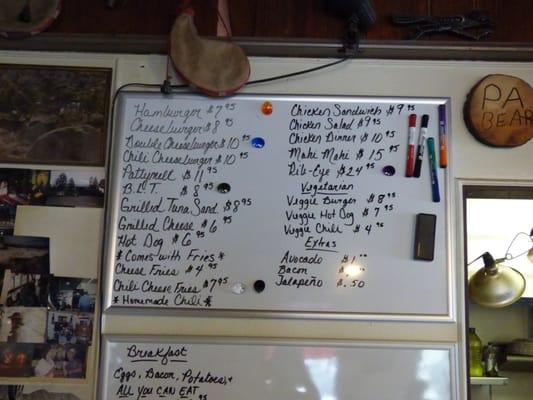 Hamburger $7.95
Cheeseburger $8.95
Double Cheeseburger $10.95
Chili Cheeseburger $10.95
Pattymelt $11.95
B.L.T. $8.95
Grilled Tuna Sand $8.95
Grilled Cheese $6.95
Hot Dog $6.95
* Comes with Fries *
Cheese Fries $4.95
Chili Cheese Fries $7.95
* Homemade Chili *
Chicken Sandwich $9.95
Chicken Salad $9.95
Chicken Dinner $10.95
Mahi Mahi $15.95
Rib-Eye $24.95
Vegetarian
Veggie Burger $8.95
Veggie Hot Dog $7.95
Veggie Chili $4.95
Extras
Avocado
Bacon
Jalapeño $.50
PA
BEAR
Breakfast
Eggs, Bacon, Potatoes, +
ALL YOU CAN EAT